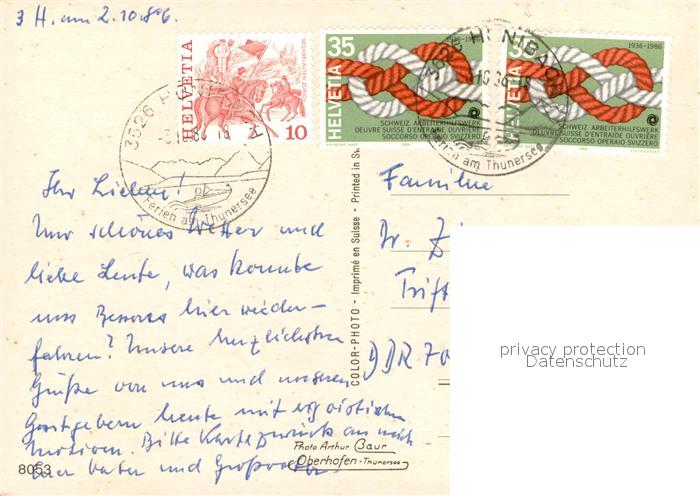 3 H. am 2.10.86.
HELVETIA
10
35
HELVETIA
1936-1986
SCHWEIZ. ARBEITERHILFSWERK
OEUVRE SUISSE D'ENTRAIDE OUVRIÈRE
SOCCORSO OPERAIO SVIZZERO
HELVETIA
1936-1986
SCHWEIZ. ARBEITERHILFSWERK
OEUVRE SUISSE D'ENTRAIDE OUVRIÈRE
SOCCORSO OPERAIO SVIZZERO
3626 H
Ferien am Thunersee
3626 HÜNIBACH
Ferien am Thunersee
Ihr Lieben!
Nur schönes Wetter und
liebe Leute, was konnte
uns Besseres hier wieder-
fahren? Unsere herzlichsten
Grüße von uns und unseren
Gastgebern heute mit
Motiven. Bitte Karte zurück an mich
Euer Vater und Großvater
COLOR-PHOTO - Imprimé en Suisse - Printed in Sw
Familie
Dr. Z
Trift
DDR 70
privacy protection
Datenschutz
Photo Arthur Baur
Oberhofen - Thunersee
8053